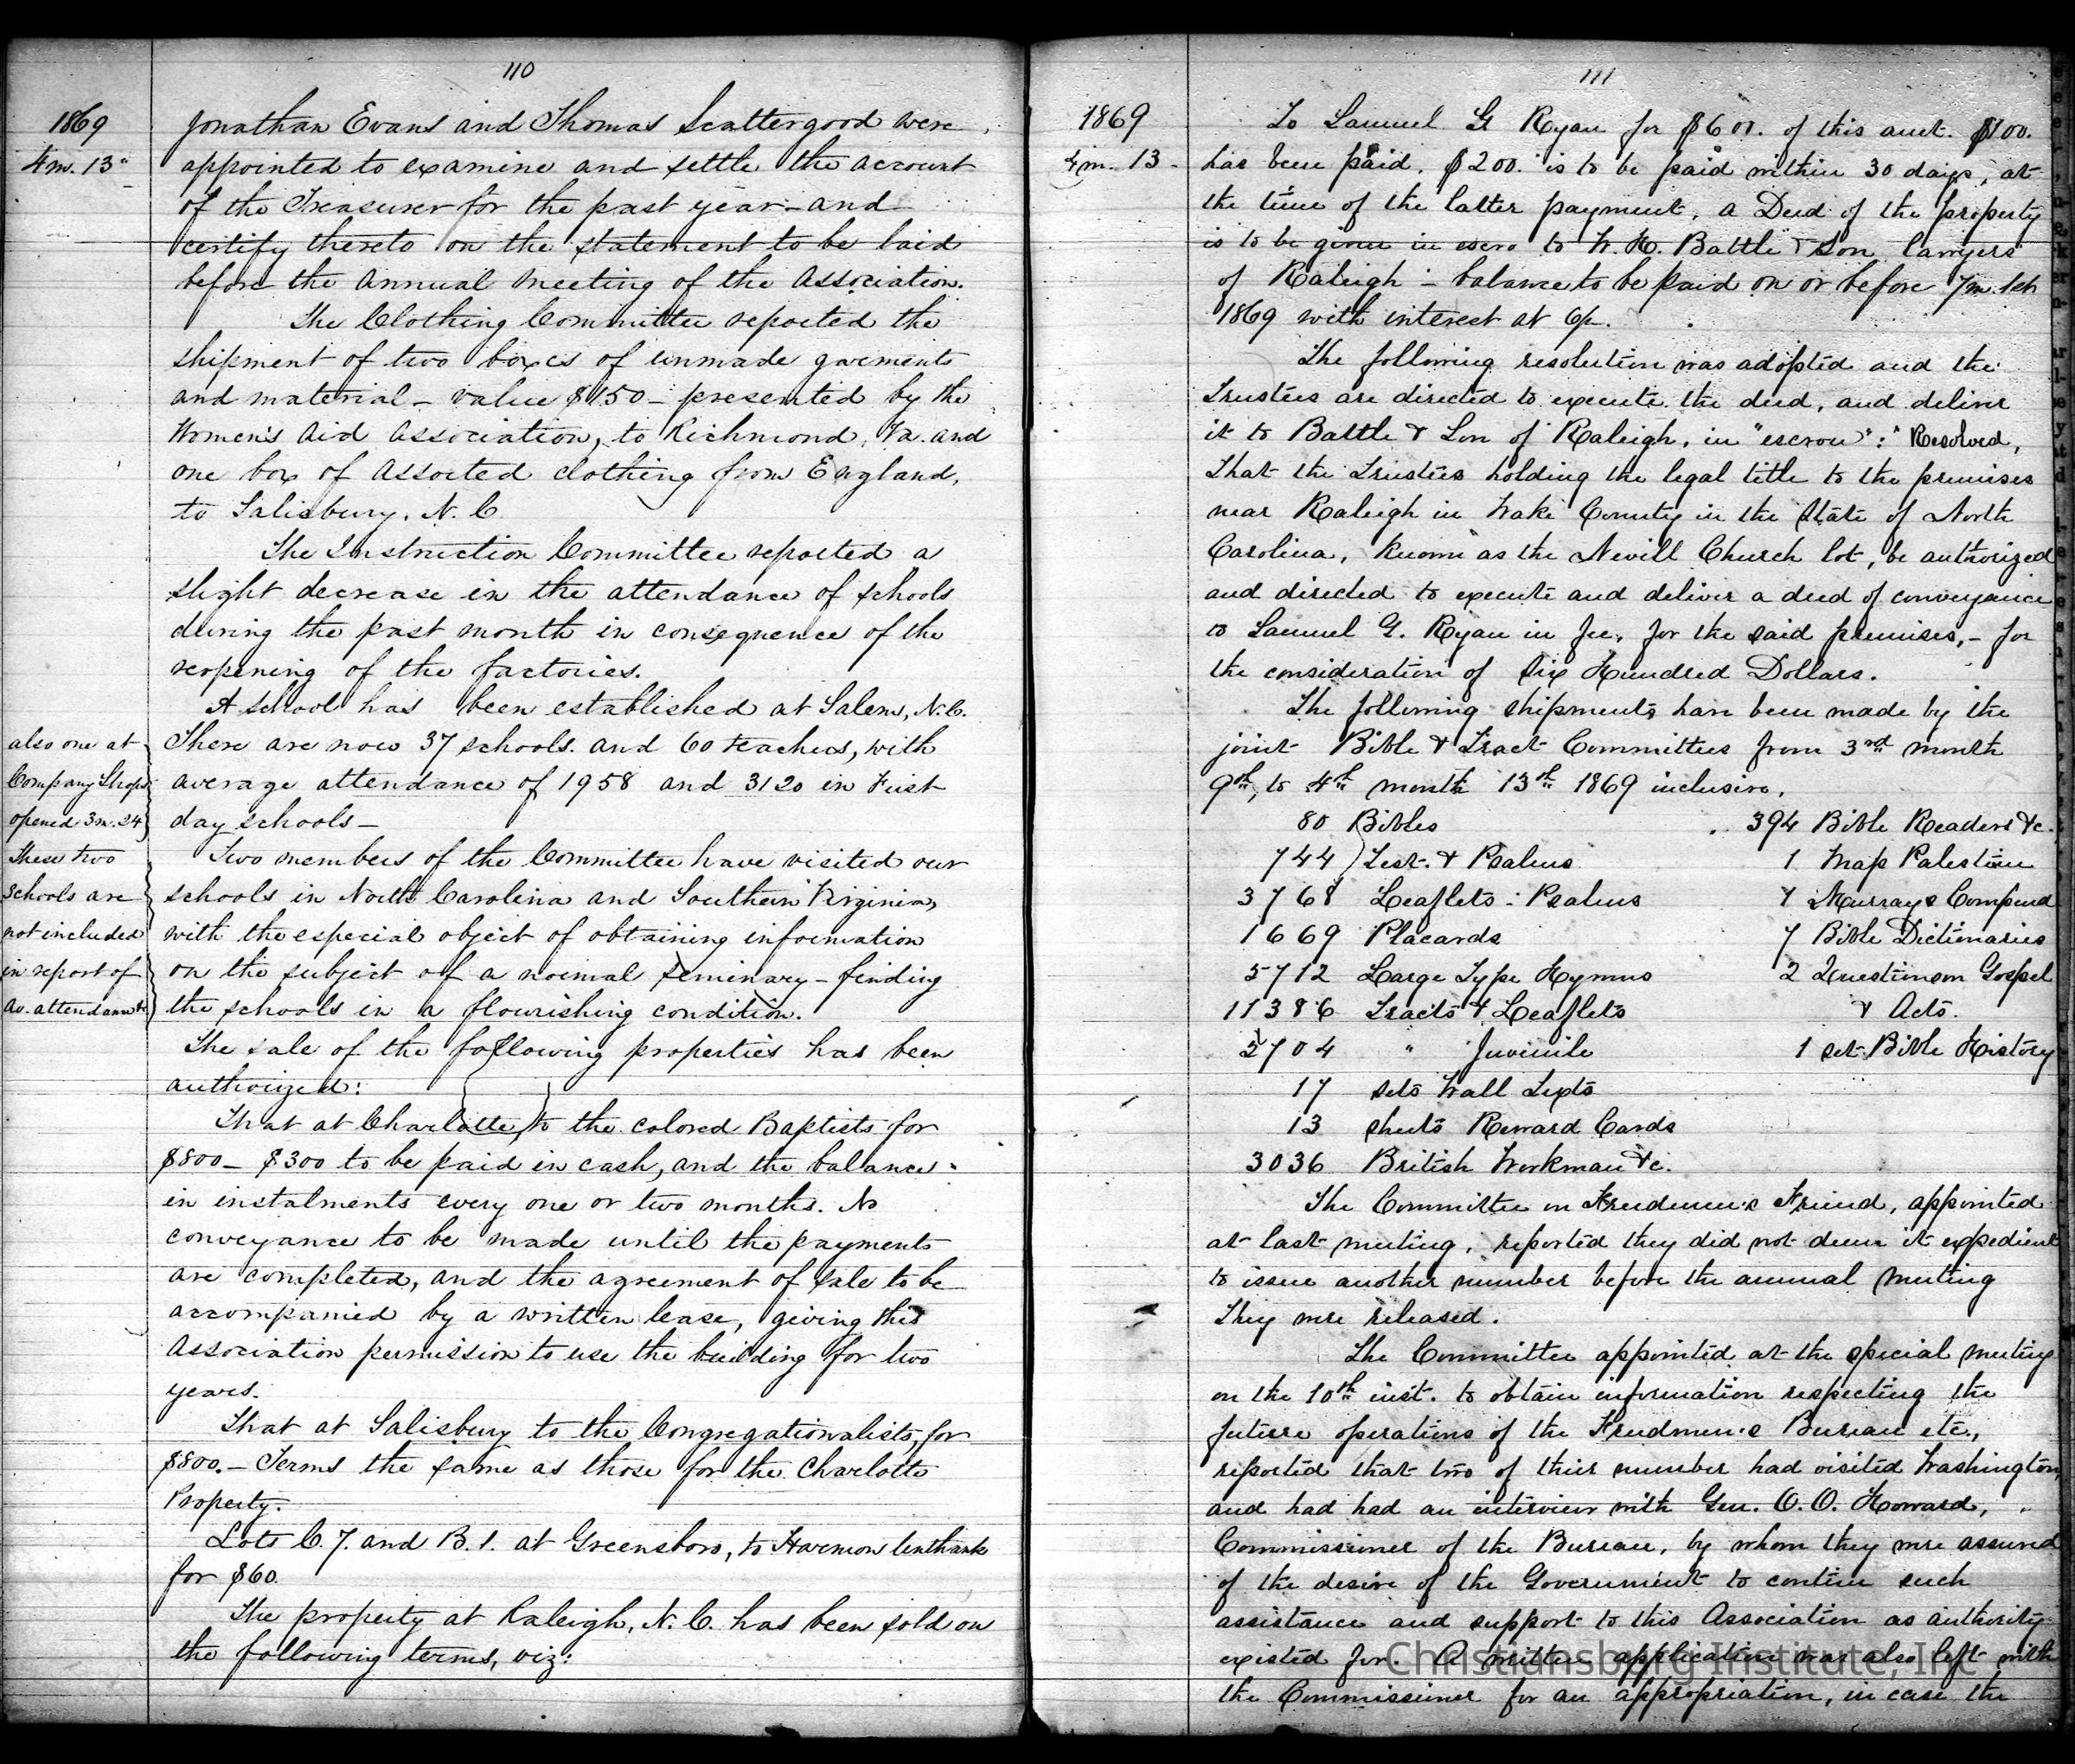 110
1869
4m. 13"
Jonathan Evans and Thomas Scattergood were
appointed to examine and settle the account
of the Treasurer for the past year - and
certify thereto on the statement to be laid
before the Annual Meeting of the Association.
The Clothing Committee reported the
shipment of two boxes of unmade garments
and material - value $150 - presented by the
Women's Aid Association, to Richmond, Va. and
one box of Assorted clothing from England,
to Salisbury, N.C
The Instruction Committee reported a
slight decrease in the attendance of schools
during the past month in consequence of the
reopening of the factories.
A school has been established at Salem, N.C.
also one at
Company Shops
opened 3m. 24
These two
schools are
not included
in report of
av. attendance &c
There are now 37 schools. and 60 teachers, with
average attendance of 1958 and 3120 in First
day schools -
Two members of the Committee have visited our
schools in North Carolina and Southern Virginia,
with the especial object of obtaining information
on the subject of a normal seminary - finding
the schools in a flourishing condition.
The sale of the following properties has been
authorized:
That at Charlotte, to the colored Baptists for
$800 - $300 to be paid in cash, and the balance
in instalments every one or two months. No
conveyance to be made until the payments
are completed, and the agreement of sale to be
accompanied by a written lease, giving this
Association permission to use the building for two
years.
That at Salisbury to the Congregationalists, for
$800. - Terms the same as those for the Charlotte
Property.
Lots C. 7. and B. 1. at Greensboro, to Harmon
for $60.
The property at Raleigh, N.C. has been sold on
the following terms, viz:
111
1869
4m. 13
To Samuel G Ryan for $600. of this amt. $100.
has been paid. $200. is to be paid within 30 days, at
the time of the latter payment, a Deed of the property
is to be given in escro to W. H. Battle & Son, lawyers
of Raleigh - balance to be paid on or before 7m. 1st
1869 with interest at 6pr.
The following resolution was adopted and the
Trustees are directed to execute the deed, and deliver
it to Battle & Son of Raleigh, in "escrow": "Resolved,
That the Trustees holding the legal title to the premises
near Raleigh in Wake County in the State of North
Carolina, known as the Nevill Church lot, be authorized
and directed to execute and deliver a deed of conveyance
to Samuel G. Ryan in fee, for the said premises, - for
the consideration of Six Hundred Dollars.
The following shipments have been made by the
joint Bible & Tract Committees from 3rd month
9th, to 4th month 13th 1869 inclusive.
80 Bibles 394 Bible Readers &c.
744 Test. & Psalms 1 Map Palestine
3768 Leaflets - Psalms 7 Murrays Compend
1669 Placards 7 Bible Dictionaries
5712 Large Type Hymns 2 Questions on Gospel
11386 Tracts & Leaflets & Acts.
2704 " Juvenile 1 set Bible History
17 sets Wall Texts
13 sheets Reward Cards
3036 British Workman &c.
The Committee on Freedmen's Friend, appointed
at last meeting, reported they did not deem it expedient
to issue another number before the annual Meeting
They were released.
The Committee appointed at the special meeting
on the 10th inst. to obtain information respecting the
future operations of the Freedmen's Bureau etc.,
reported that two of their number had visited Washington,
and had had an interview with Gen. O. O. Howard,
Commissioner of the Bureau, by whom they were assured
of the desire of the Government to continue such
assistance and support to this Association as authority
existed for. A written application was also left with
the Commissioner for an appropriation, in case the
Christiansburg Institute, Inc